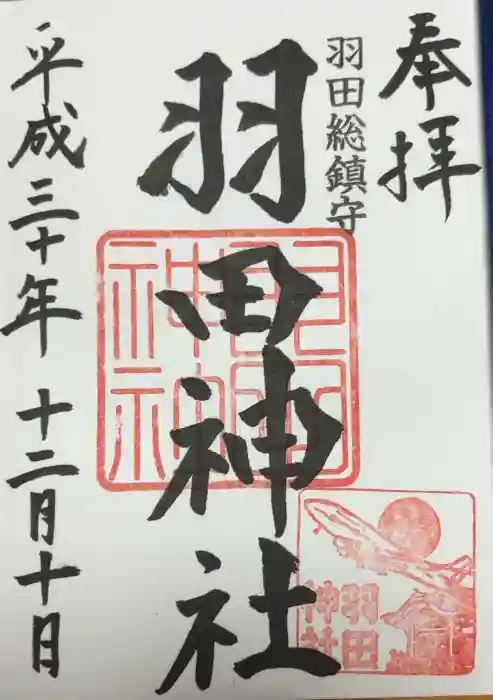 奉拝
羽田総鎮守
羽田神社
平成三十年 十二月十日
羽田
神社